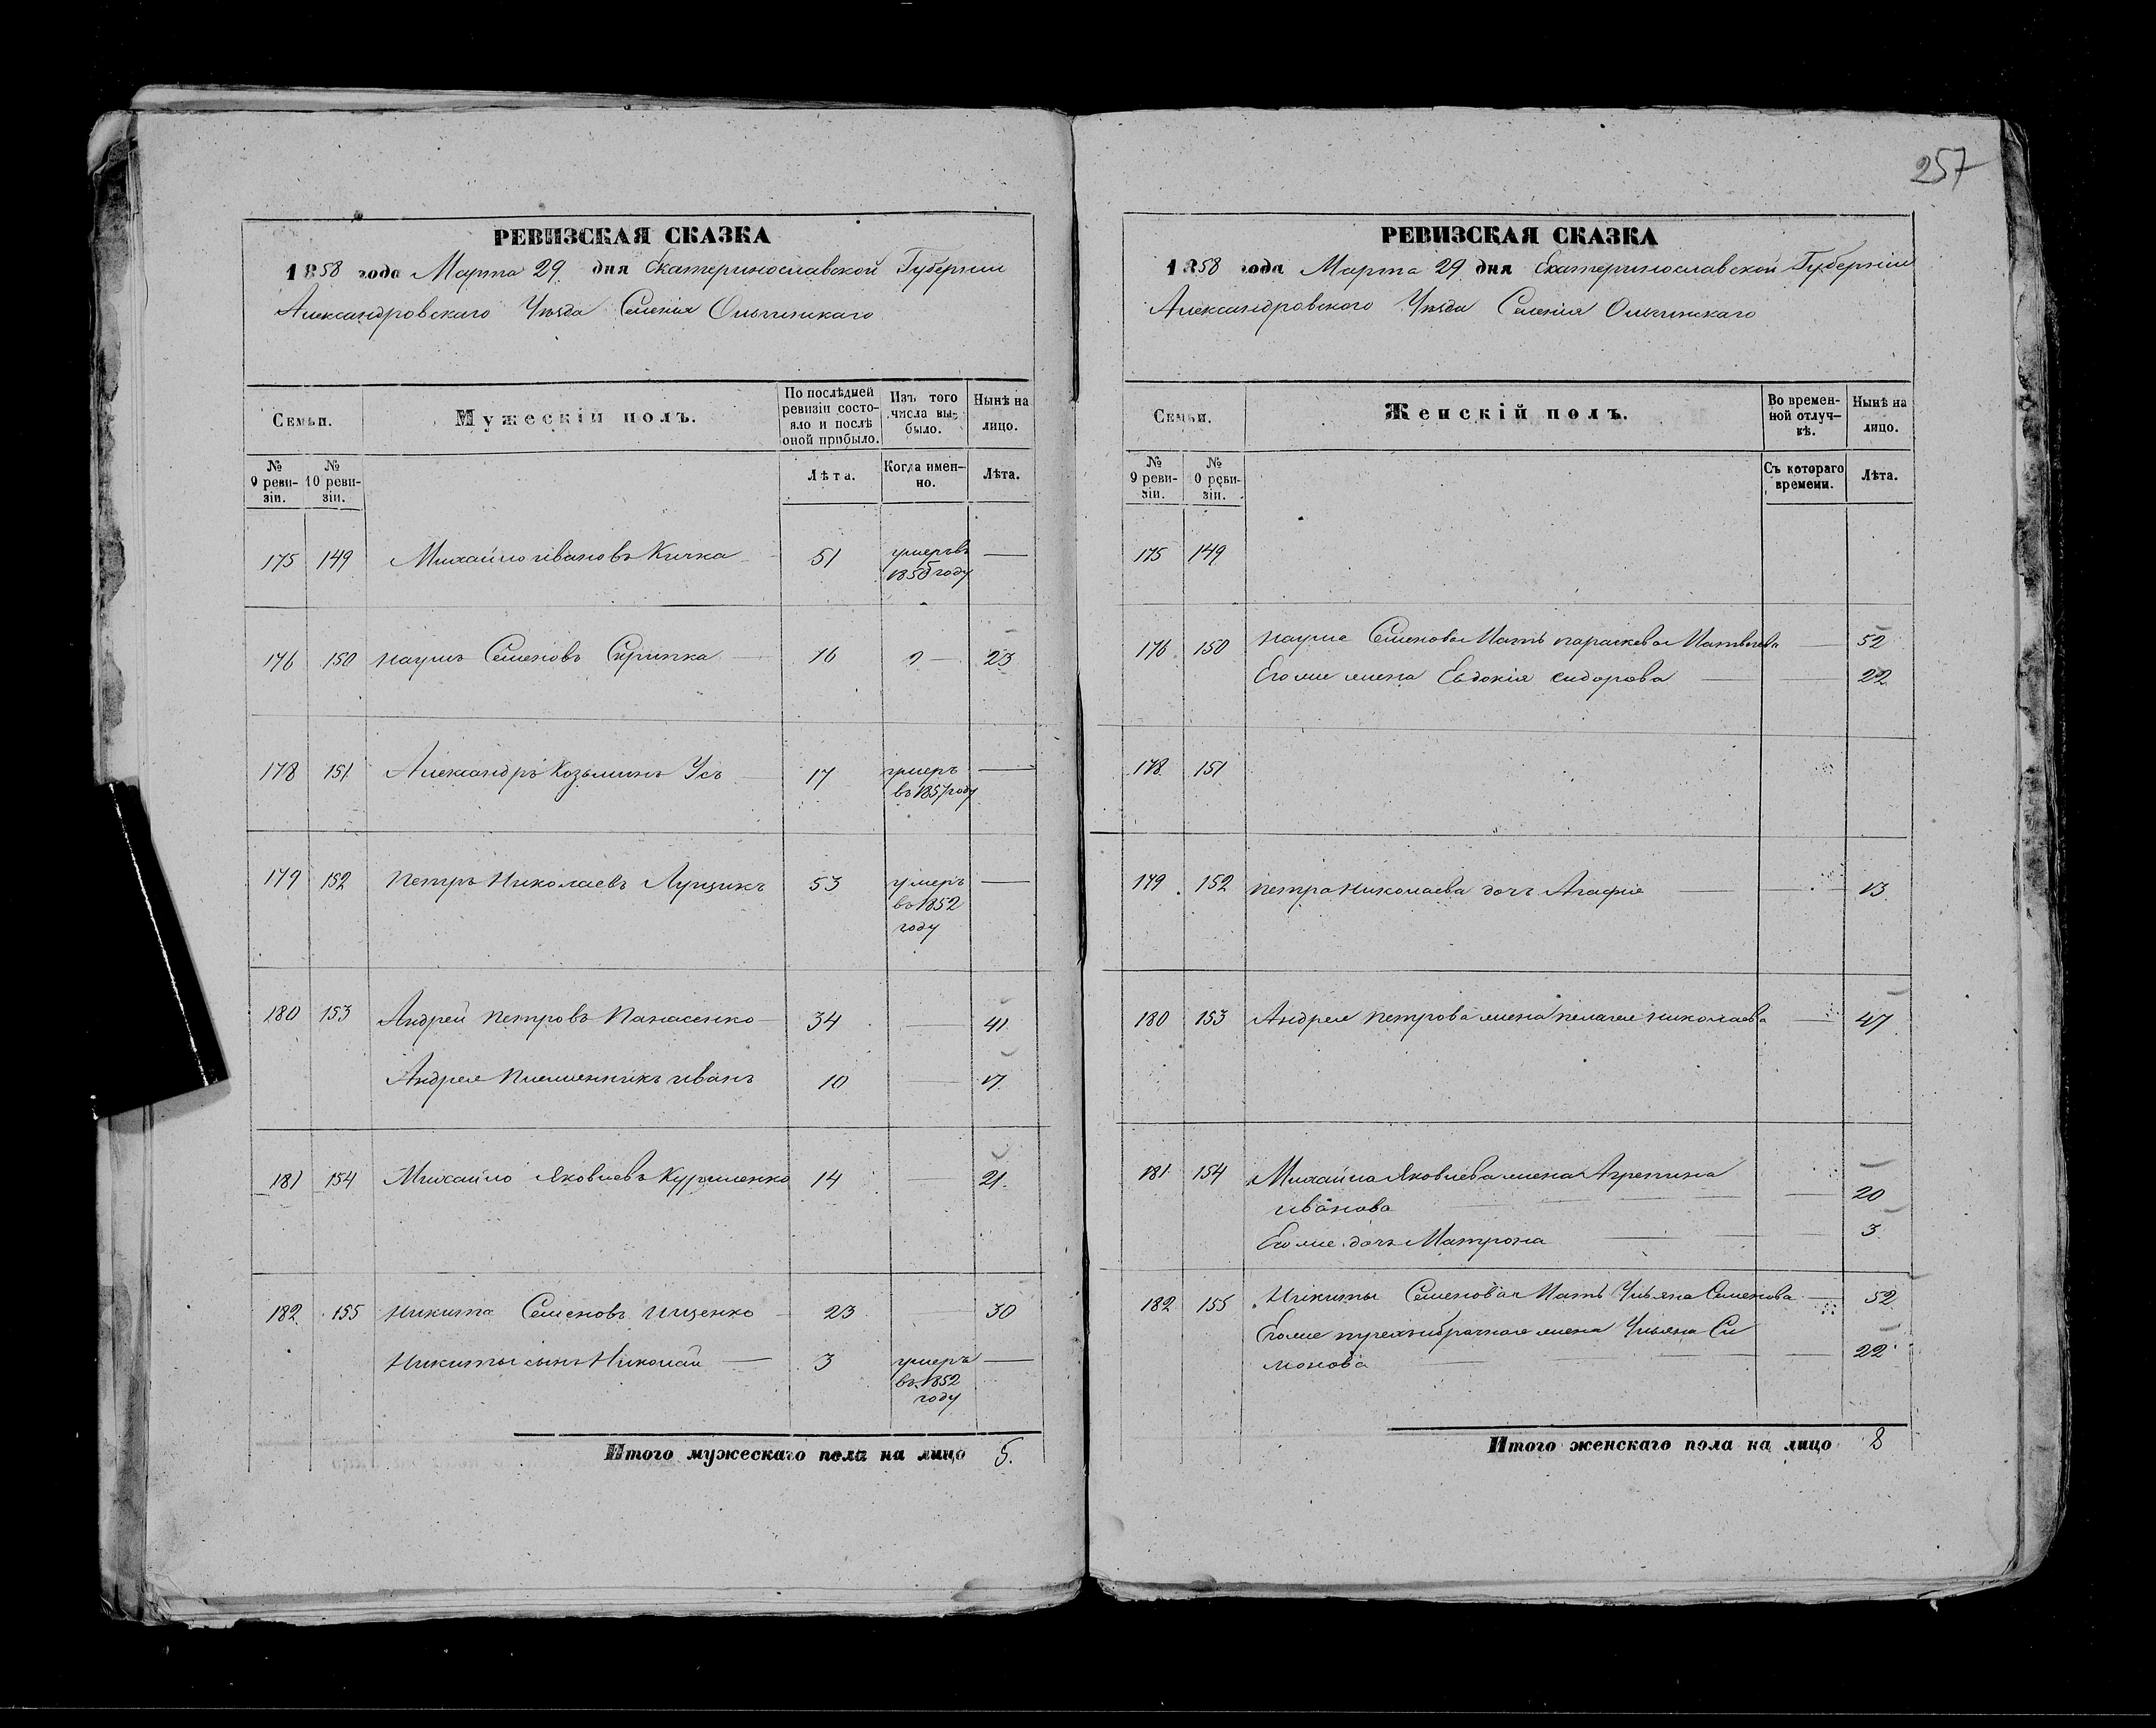 257
РЕВИЗСКАЯ СКАЗКА
1858 года Марта 29 дня Екатеринославской Губерніи
Александровскаго Уѣзда Селенія Ольгинскаго
Семьи.
Мужескій полъ.
По послѣдней ревизіи состояло и послѣ оной прибыло.
Изъ того числа выбыло.
Нынѣ на лицо.
№ 9 ревизіи.
№ 10 ревизіи.
Лѣта.
Когда именно.
Лѣта.
175 149 Михайло Ивановъ Кичка 51 умеръ въ —
185 году
176 150 Наумъ Семеновъ Скрипка — 16 — 23
178 151 Александръ Козьминъ Усъ — 17 умеръ —
въ 1857 году
179 152 Петръ Николаевъ Лущикъ 53 умеръ —
въ 1852
году
180 153 Андрей Петровъ Панасенко — 34 — 41
Андрея Племенникъ Иванъ 10 — 17
181 154 Михайло Яковлевъ Куриленко 14 — 21.
182 155 Никита Семеновъ Ищенко — 23 — 30
Никиты сынъ Николай — 3 умеръ —
въ 1852
году
Итого мужескаго пола на лицо 5.
РЕВИЗСКАЯ СКАЗКА
1858 года Марта 29 дня Екатеринославской Губерніи
Александровского Уѣзда Селенія Ольгинскаго
Семьи.
Женскій полъ.
Во временной отлучкѣ.
Нынѣ на лицо.
№ 9 ревизіи.
№ 0 ревизіи.
Съ котораго времени.
Лѣта.
175 149
176 150 Наума Семенова Мать Параскева Матвѣева — 52
Его же жена Евдокія Сидорова — — 22
178 151
179 152 Петра Николаева дочь Агафія — — 13
180 153 Андрея Петрова жена Пелагея Николаева — 47
181 154 Михайла Яковлева жена Агрепина
Иванова — — 20
Его же дочь Матрона — — 3
182 155 Никиты Семенова Мать Ульяна Семенова — 52
Его же жена Ульяна Си
монова — — — 22
Итого женскаго пола на лицо 8